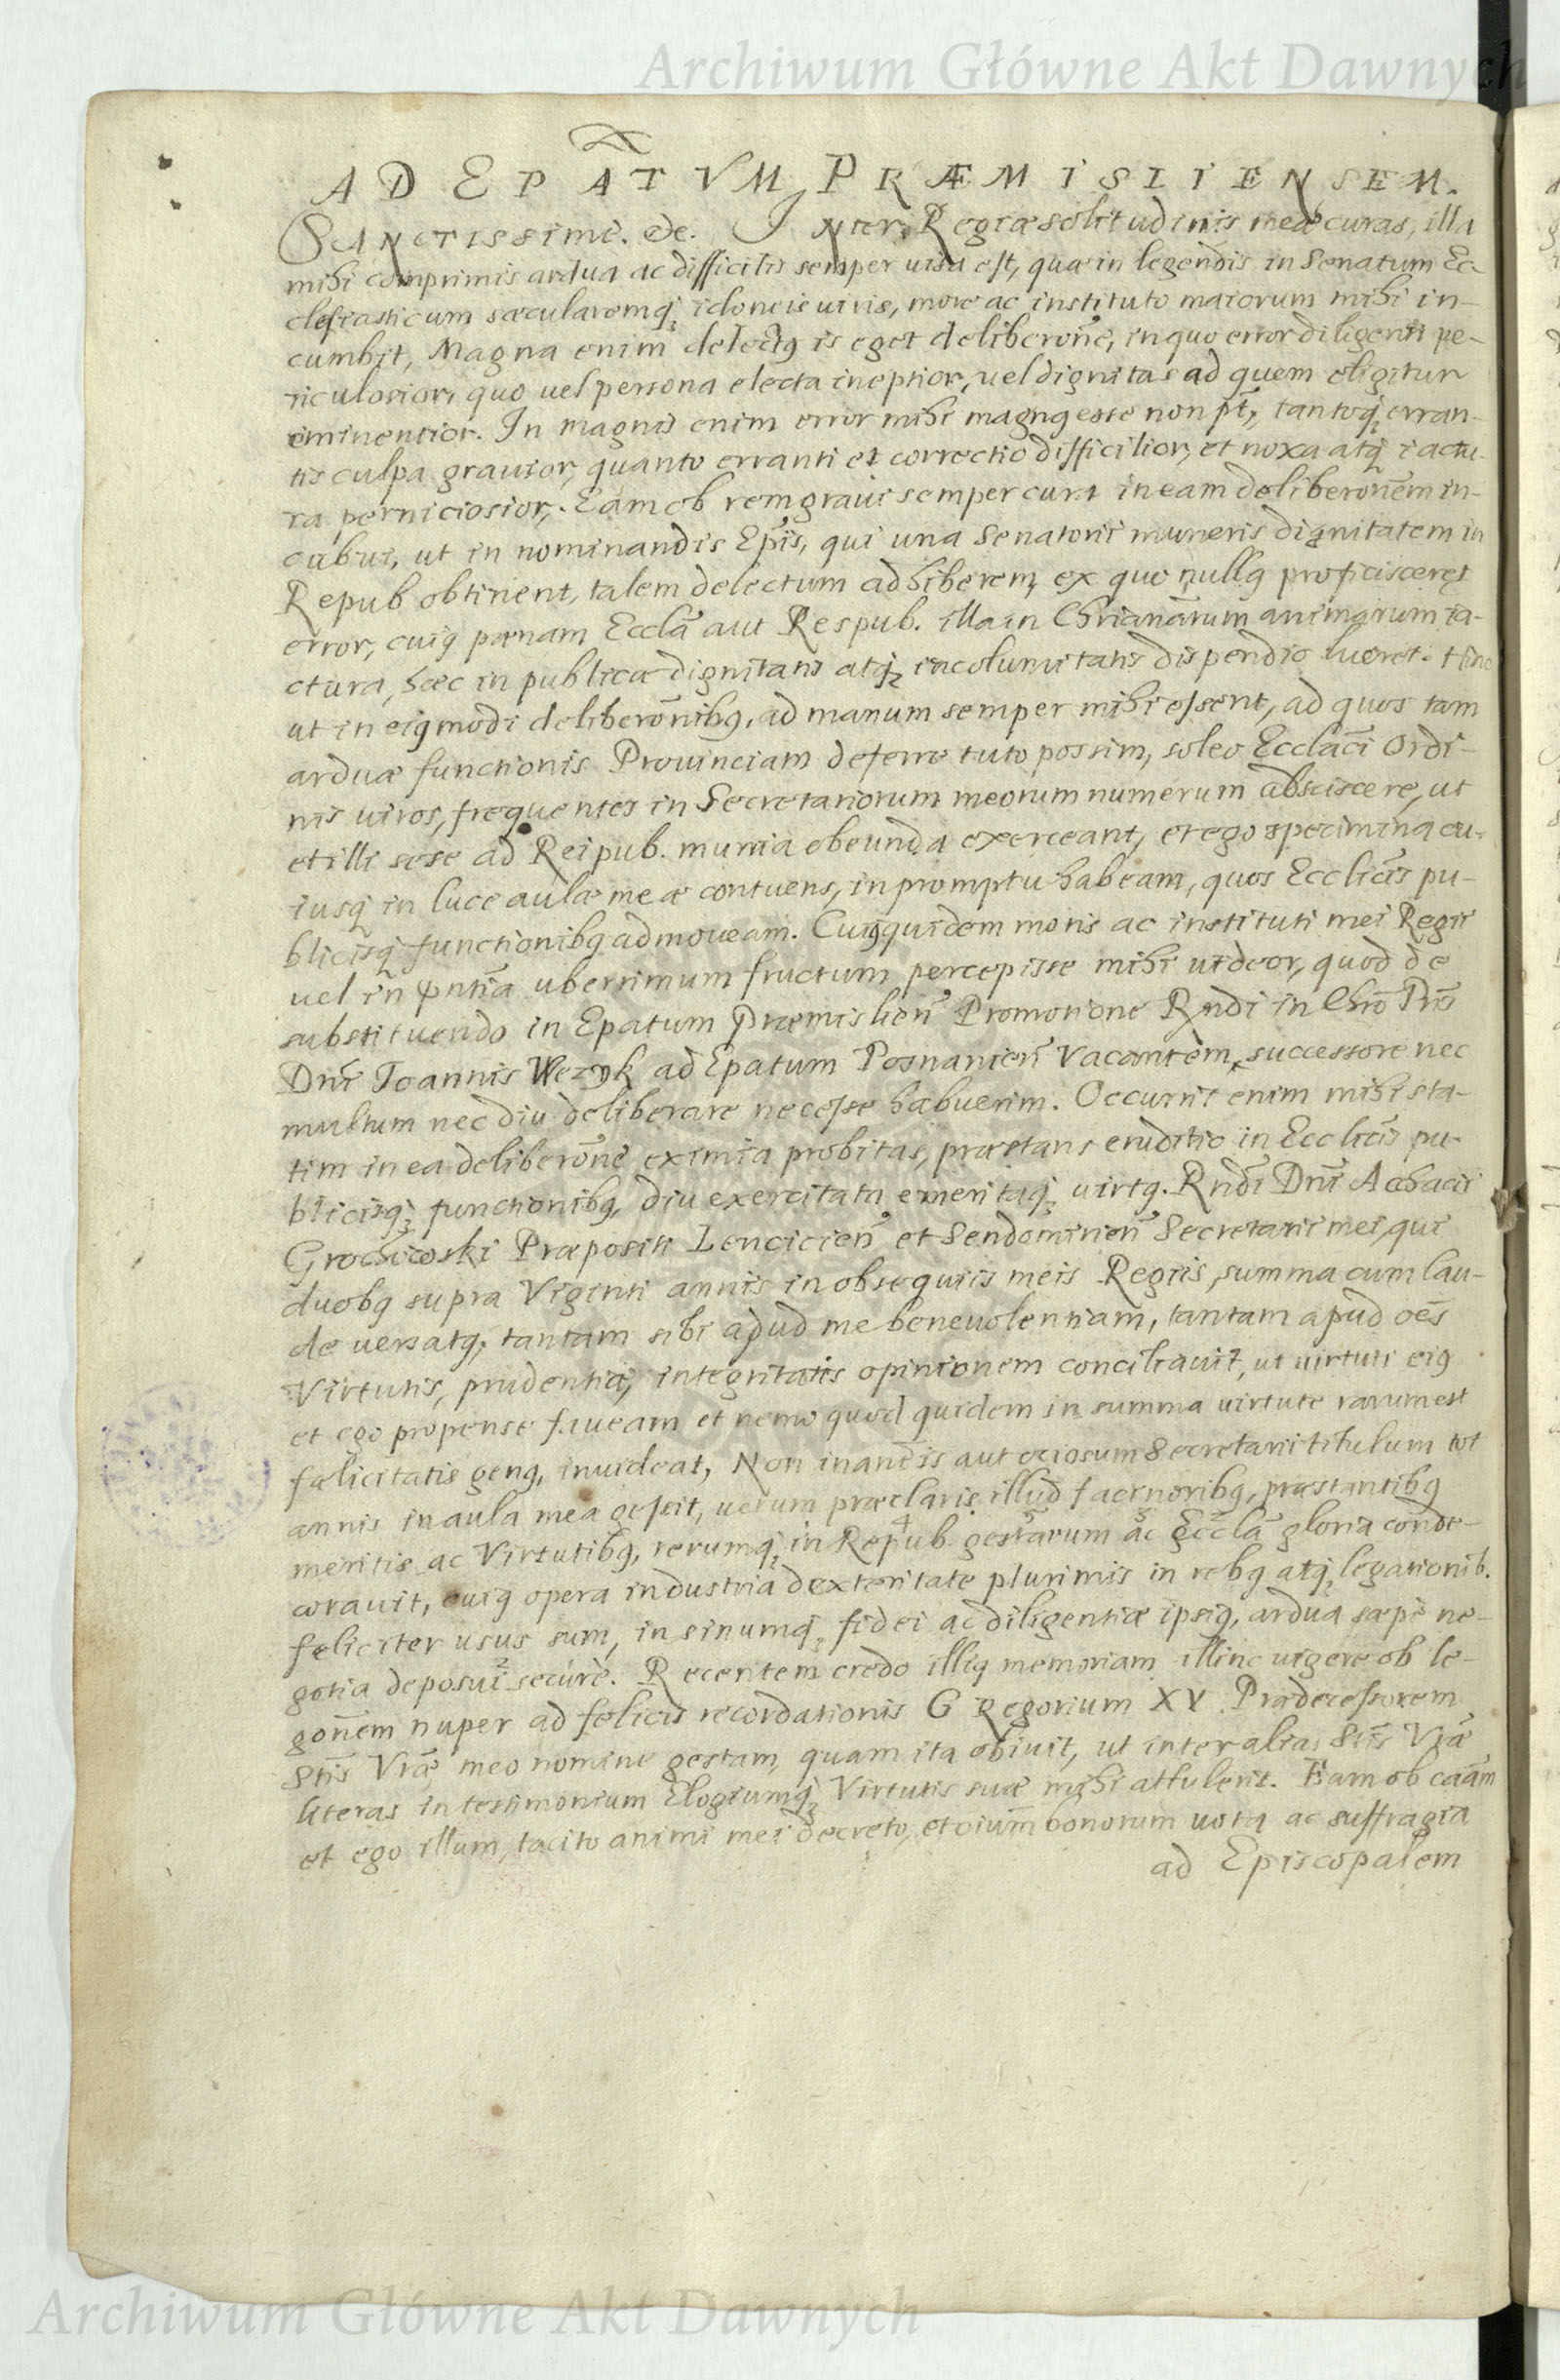 Archiwum Główne Akt Dawnych
AD EPATVM PRÆMISLIENSEM.
SANCTISSIME. &c. INter Regiæ solitudinis meæ curas, illa
mihi comprimis ardua ac difficilis semper uisa est, quæ in legendis in Senatum Ec-
clesiasticum sæcularemq; idoneis uiris, more ac instituto maiorum mihi in-
cumbit, Magna enim delectus is eget deliberoñe, in quo error diligenti pe-
riculosior, quo uel persona electa ineptior, uel dignitas ad quem eligitur
eminentior. In magnis enim error mihi magnus esse non pt, tantoq; erran-
tis culpa grauior, quanto erranti et correctio difficilior, et noxa atq; iactu-
ra perniciosior. Eam ob rem graui semper cura in eam deliberoñem in-
cubui, ut in nominandis Epis, qui una Senatorii muneris dignitatem in
Repub obtinent, talem delectum adhiberem, ex quo nullus proficisceret
error, cuius pænam Eccla aut Respub. illa in Chrianarum animarum ia-
ctura, hæc in publicæ dignitatis atq; incolumitatis dispendio lueret. Hinc
ut in eiusmodi deliberoñibus, ad manum semper mihi essent, ad quos tam
arduæ functionis Prouinciam deferre tuto possim, soleo Ecclaci Ordi-
nis uiros, frequentes in Secretariorum meorum numerum absciscere, ut
et illi sese ad Reipub. munia obeunda exerceant, et ego specimina cu-
iusq; in luce aulæ meæ contuens, in promptu habeam, quos Ecclicis pu-
blicisq; functionibus admoueam. Cuius quidem moris ac instituti mei Regii
uel in pntia uberrimum fructum percepisse mihi uideor, quod de
substituendo in Epatum Præmislien Promotione Rndi in Chro Pris
Dni Joannis Wezyk ad Epatum Posnanien vacantem, successore nec
multum nec diu deliberare necesse habuerim. Occurrit enim mihi sta-
tim in ea deliberoñe eximia probitas, præstans eruditio in Ecclicis pu-
blicisq; functionibus, diu exercitata emeritaq; uirtus. Rndi Dni Achacii
Grochowski Præpositi Lencicien et Sendomirien Secretarii mei, qui
duobus supra Viginti annis in obsequiis meis Regiis, summa cum lau-
de uersatus, tantam sibi apud me beneuolentiam, tantam apud oes
Virtutis, prudentiæ, integritatis opinionem conciliauit, ut uirtuti eius
et ego propense faueam et nemo quod quidem in summa uirtute rarum est
fælicitatis genus, inuideat, Non inanem is aut ociosum Secretarii titulum tot
annis in aula mea gessit, uerum præclaris illud facinoribus, præstantibus
meritis ac Virtutibus, rerumq; in Repub. gestarum ac Eccla gloria conde-
corauit, cuius opera industria dexteritate plurimis in rebus atq; legationib.
feliciter usus sum, in sinumq; fidei ac diligentiæ ipsius, ardua sæpe ne-
gotia deposui secure. Recentem credo illius memoriam illinc uigere ob le-
goñem nuper ad felicis recordationis GRegorium XV. Prædecessorem
Stis Vræ meo nomine gestam, quam ita obiuit, ut inter alias Stis Vræ
literas in testimonium Elogiumq; Virtutis suæ mihi attulerit. Eam ob caam
et ego illum, tacito animi mei decreto, et oium bonorum uota ac suffragia
ad Episcopalem
Archiwum Główne Akt Dawnych